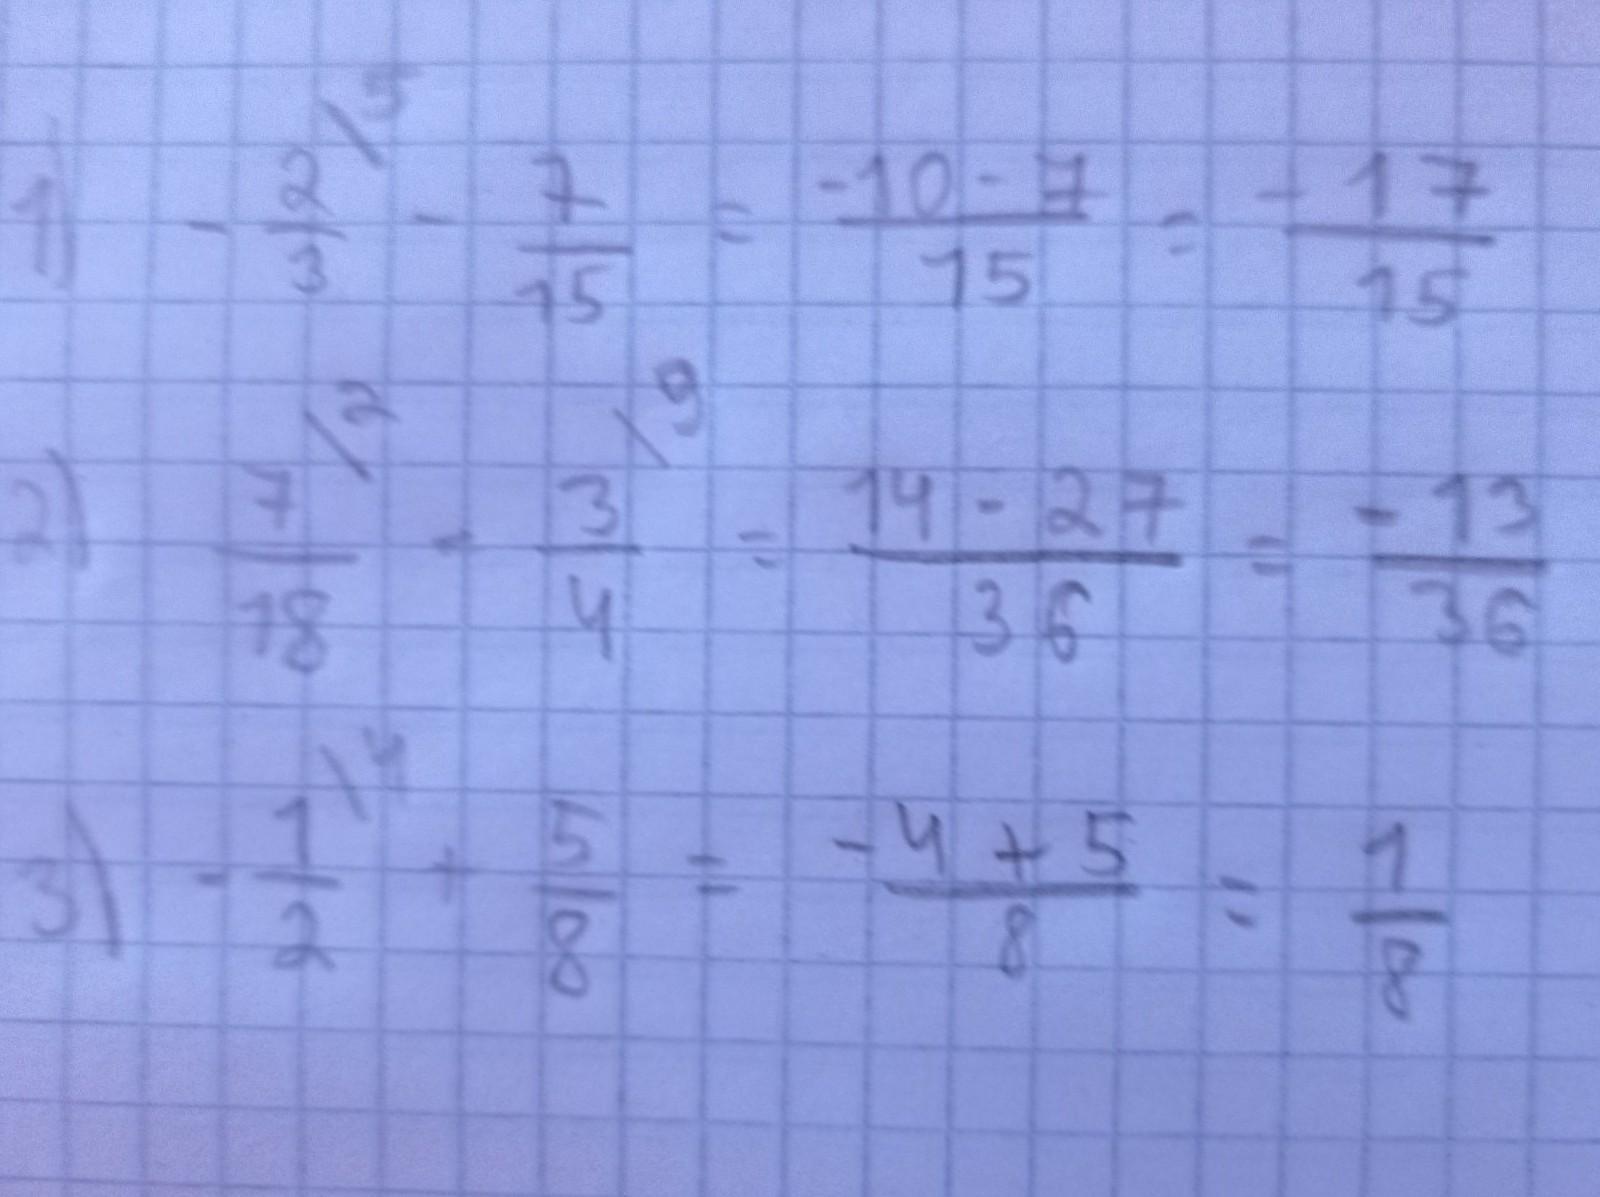 1) - 2/3 \5 - 7/15 = -10-7/15 = -17/15
2) 7/18 \2 - 3/4 \9 = 14-27/36 = -13/36
3) -1/2 \4 + 5/8 = -4+5/8 = 1/8